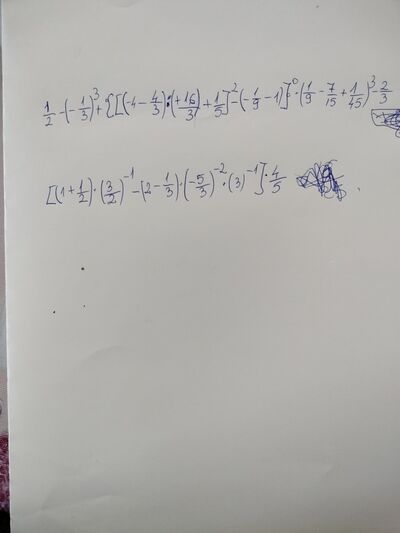 1/2 - (-1/3)^3 + {[(-4 - 4/3) : (+16/3) + 1/5]^2 - (-1/9 - 1)}^0 · (1/9 - 7/15 + 1/45)^3 - 2/3
[(1 + 1/2) · (3/2)^-1 - (2 - 1/3) · (-5/3)^-2 · (3)^-1] · 4/5